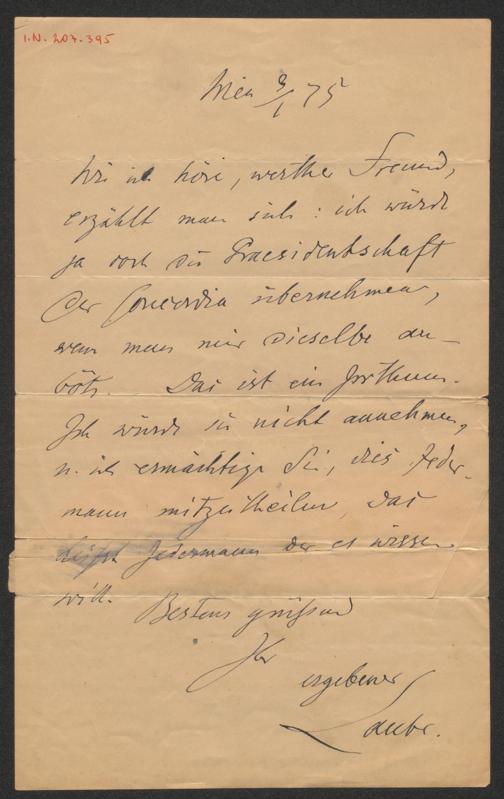 I.N. 207.395
Wien 3/1 75
Wie ich höre, werther Freund,
erzählt man sich: ich würde
ja doch die Praesidentschaft
der Concordia übernehmen,
wenn man mir dieselbe an-
böte. Das ist ein Irrthum.
Ich würde sie nicht annehmen,
u. ich ermächtige Sie, dies Jeder-
mann mitzutheilen, das
heißt Jedermann der es wissen
will. Bestens grüßend
Ihr
ergebener
Laube.